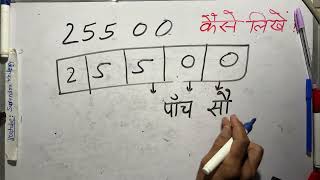 25500 कैसे लिखें
2 5 5 0 0
पाँच सौ